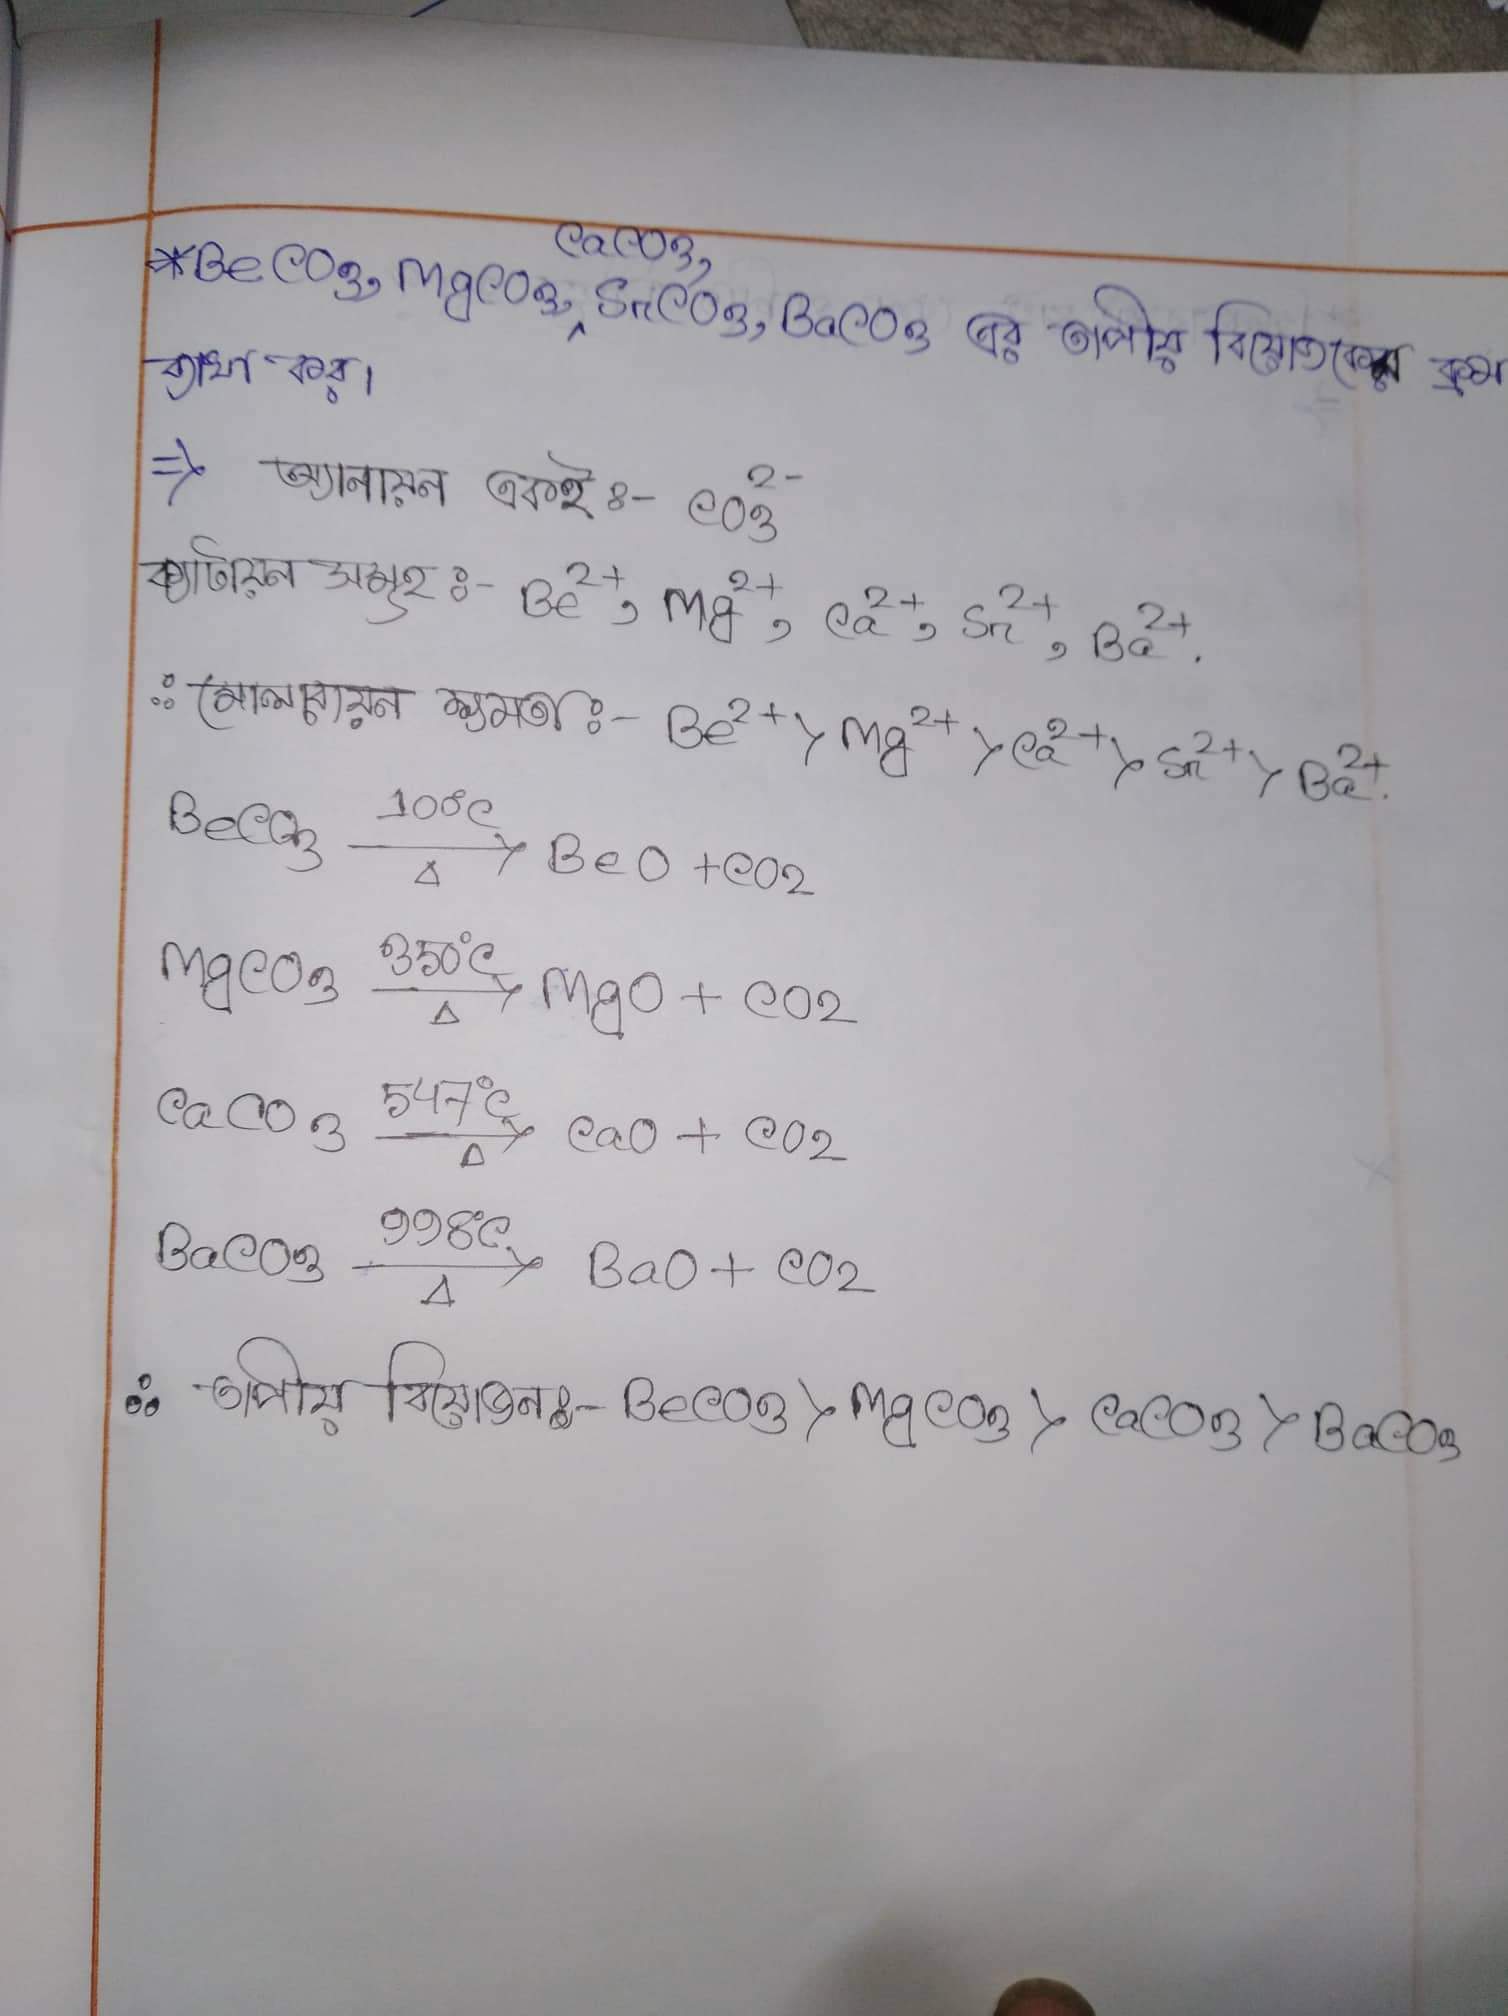 *BeCO3, MgCO3, CaCO3, SrCO3, BaCO3 এর তাপীয় বিয়োজনের ক্রম
ব্যাখা কর।
⇒ অ্যানায়ন একই ঃ- CO3^2-
ক্যাটায়ন সমূহ ঃ- Be^2+, Mg^2+, Ca^2+, Sr^2+, Ba^2+.
∴ পোলারায়ন ক্ষমতা ঃ- Be^2+ > Mg^2+ > Ca^2+ > Sr^2+ > Ba^2+.
BeCO3 100°C → Δ BeO + CO2
MgCO3 350°C → Δ MgO + CO2
CaCO3 547°C → Δ CaO + CO2
BaCO3 998°C → Δ BaO + CO2
∴ তাপীয় বিয়োজন ঃ- BeCO3 > MgCO3 > CaCO3 > BaCO3